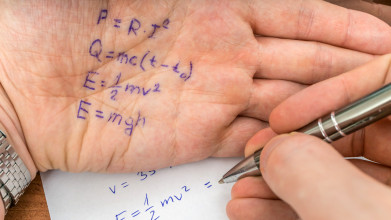 P = R · J²
Q = mc(t - t₀)
E = ½ mv²
E = mgh
v = 35
E = ½ mv² =